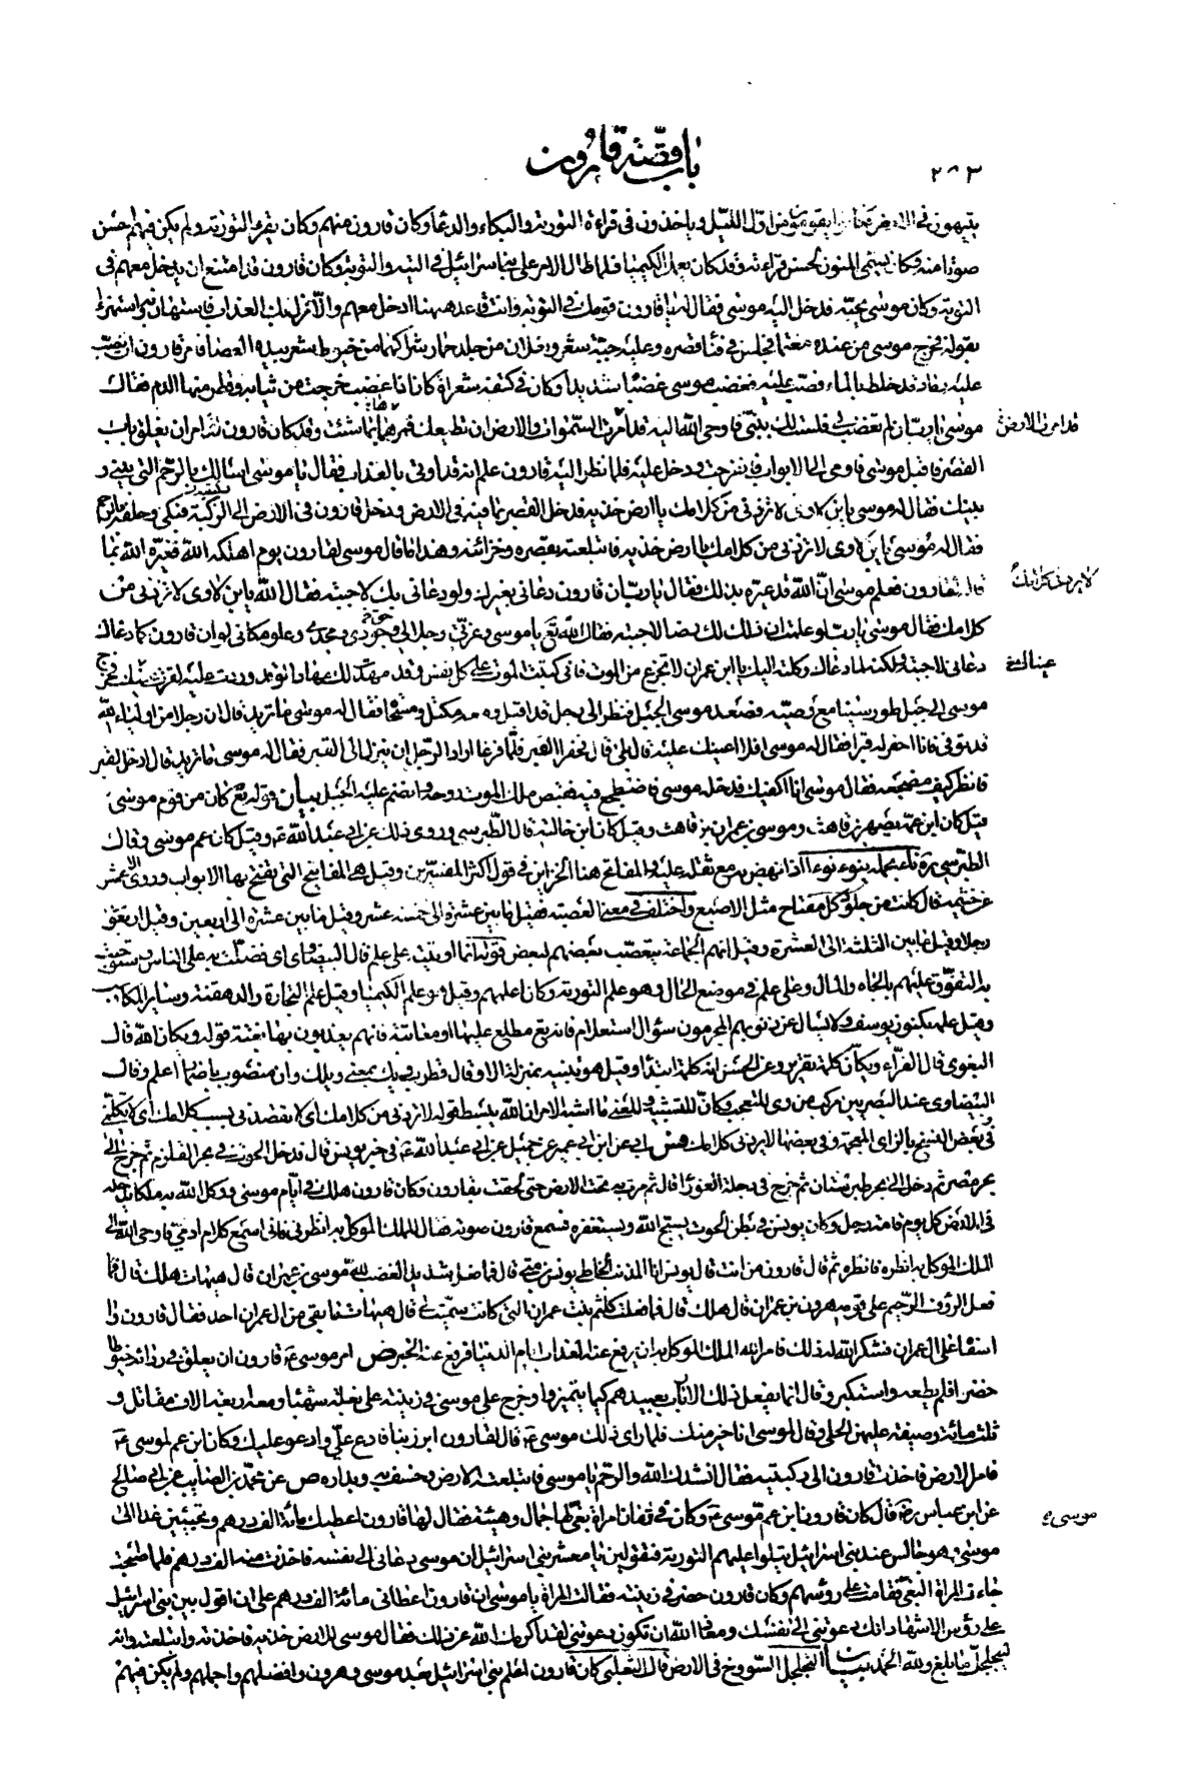 باب قصّة قارون
٢٨٣
يتيهون في الارض فكانوا يقومون من اوّل اللّيل و ياخذون في قراءة التورية و البكاء و الدعاء و كان قارون منهم و كان يقرء التورية و لم يكن فيهم احسن
صوتا منه و كان يسمّى المنون لحسن قراءته و قد كان يعمل الكيميا فلما طال الامر على بني اسرائيل في التيه و التوبة و كان قارون قد امتنع ان يدخل معهم في
التوبة و كان موسى يحبّه فدخل اليه موسى فقال له يا قارون قومك في التوبة و انت قاعد ههنا ادخل معهم و الّا نزل بك العذاب فاستهان به و استهزء
بقوله فخرج موسى من عنده مغتما فجلس في فناء قصره و عليه جبّة شعر و نعلان من جلد حمار شراكهما من خيوط شعر بيده العصا فامر قارون ان يصبّ
عليه رماد قد خلط بالماء فصبّ عليه فغضب موسى غضبا شديدا و كان في كتفه شعرات كان اذا غضب خرجت من ثيابه و قطر منها الدم فقال
موسى يا ربّ ان لم تغضب لي فلست لك بنبيّ فاوحى الله اليه قد امرت السّموات و الارض ان تطيعك فمرهما بما شئت و قد كان قارون قد امر ان يغلق باب
قد امرت الارض
القصر فاقبل موسى فاومى الى الابواب فانفرجت و دخل عليه فلما نظر اليه قارون علم انه قد اوتي بالعذاب فقال يا موسى اسالك بالرّحم التي بيني و
بينك فقال له موسى يا بن لاوى لا تزدني من كلامك يا ارض خذيه فدخل القصر بما فيه في الارض و دخل قارون في الارض الى الركبة فبكى و حلّفه بالرحم
فقال له موسى يا بن لاوى لا تزدني من كلامك يا ارض خذيه فابتلعته بقصره و خزائنه و هذا ما قال موسى لقارون يوم اهلكه الله فعيّره الله بما
قاله لقارون فعلم موسى انّ الله قد عيّره بذلك فقال يا ربّ ان قارون دعاني بغيرك و لو دعاني بك لاجبته فقال الله يا بن لاوى لا تزدني من
كلامك فقال موسى يا ربّ لو علمت ان ذلك لك رضا لاجبته فقال الله تع يا موسى و عزّتي و جلالي و جودي و مجدي و علو مكاني لو ان قارون كما دعاك
دعاني لاجبته و لكنه لما دعاك و كلته اليك يا ابن عمران لا تجزع من الموت فاني كتبت الموت على كل نفس و قد مهدت لك مهادا لو قد وردت عليه لقرّت عينك فخرج
عيناك خ
موسى الى جبل طور سينا مع وصيّه فصعد موسى الجبل فنظر الى رجل قد اقبل و معه مكتل و مسحاة فقال له موسى ما تريد قال ان رجلا من اولياء الله
قد توفي فانا احفر له قبرا فقال له موسى افلا اعينك عليه قال بلى قال فحفرا القبر فلمّا فرغا اراد الرّجل ان ينزل الى القبر فقال له موسى ما تريد قال ادخل القبر
فانظر كيف مضجعه فقال موسى انا اكفيك فدخله موسى فاضطجع فيه فقبض ملك الموت روحه و انضم عليه الجبل بيان قوله تع كان من قوم موسى
قيل كان ابن عمه يصهر بن قاهث و موسى بن عمران بن قاهث و قيل كان ابن خالته قال الطّبرسي و روي ذلك عن ابي عبد الله ع و قيل كان عم موسى و قال
الطبرسي ره ناء بحمله ينوء نوءا اذا نهض به مع ثقله عليه و المفاتح هنا الخزائن في قول اكثر المفسّرين و قيل هي المفاتيح التي تفتح بها الابواب و روى الاعمش
عن خثيمة قال كانت من جلود كل مفتاح مثل الاصبع و اختلف في معنى العصبة فقيل ما بين عشرة الى خمسة عشر و قيل ما بين عشرة الى اربعين و قيل اربعون
رجلا و قيل ما بين الثلثة الى العشرة و قيل انهم الجماعة يتعصّب بعضهم لبعض قوله انما اوتيته على علم قال البيضاوي اي فضّلت به على الناس و استوجبت
به التفوّق عليهم بالجاه و المال و على علم في موضع الحال و هو علم التورية و كان اعلمهم و قيل هو علم الكيميا و قيل علم التجارة و الدهقنة و سائر المكاسب
و قيل علمه بكنوز يوسف و لا يسال عن ذنوبهم المجرمون سؤال استعلام فانه تع مطلع عليها او معاتبة فانهم يعذبون بها بغتة قوله ويكان الله قال
البغوي قال الفرّاء ويكأنّ كلمة تقرير و عن الحسن انه كلمة ابتداء و قيل هو تنبيه بمنزلة الا و قال قطرب ويك بمعنى ويلك و ان منصوب باضمار اعلم و قال
البيضاوي عند البصريين مركب من وي للتعجب و كانّ للتشبيه و المعنى ما اشبه الامر ان الله يبسط قوله لا تزدني من كلامك اي لا تقصدني بسبب كلامك اي لا تكلّمني
و في بعض النسخ بالزاي المعجمة و في بعضها لا يردني كلامك فس ابي عن ابن ابي عمير عن جميل عن ابي عبد الله ع في خبر يونس قال فدخل الحوت في بحر القلزم ثم خرج الى
بحر مصر ثم دخل الى بحر طبرستان ثم خرج في دجلة الغورا قال ثم مر به تحت الارض حتى لحقت بقارون و كان قارون هلك في ايّام موسى و وكل الله به ملكا يدخله
في الارض كل يوم قامة رجل و كان يونس في بطن الحوت يسبّح الله و يستغفره فسمع قارون صوته فقال للملك الموكل به انظرني فاني اسمع كلام ادمي فاوحى الله الى
الملك الموكل به انظره فانظره ثم قال قارون من انت قال يونس انا المذنب الخاطئ يونس بن متى قال فما فعل الشديد الغضب لله موسى بن عمران قال هيهات هلك قال فما
فعل الرؤف الرّحيم على قومه هرون بن عمران قال هلك قال فما فعلت كلثم بنت عمران التي كانت سمّيت لي قال هيهات ما بقي من ال عمران احد فقال قارون وا
اسفا على ال عمران فشكر الله له ذلك فامر الله الملك الموكل به ان يرفع عنه العذاب ايام الدنيا فرفع عنه الخبر ص امر موسى ع قارون ان يعلق في ردائه خيوطا
خضرا فلم يطعه و استكبر و قال انما يفعل ذلك الارباب بعبيدهم كيما يتميزوا و خرج على موسى في زينته على بغلة شهباء و معه اربعة الاف مقاتل و
ثلث مائة وصيفة عليهن الحلي و قال لموسى انا خير منك فلما راى ذلك موسى ع قال لقارون ابرز بنا فادع عليّ و ادعو عليك و كان ابن عم لموسى ع
فامر الارض فاخذت قارون الى ركبتيه فقال انشدك الله و الرحم يا موسى فابتلعته الارض و خسف به و بداره ص عن محمد بن السائب عن ابي صالح
عن ابن عباس رض قال كان قارون ابن عم موسى ع و كان في زمانه امراة بغي لها جمال و هيئة فقال لها قارون اعطيك مائة الف درهم و تجيئين غدا الى
موسى ع
موسى و هو جالس عند بني اسرائيل يتلو عليهم التورية فتقولين يا معشر بني اسرائيل ان موسى دعاني الى نفسه فاخذت منه الف درهم فلما اصبحت
جاءت المراة البغي فقامت على رؤسهم و كان قارون حضر في زينته فقالت المراة يا موسى ان قارون اعطاني مائة الف درهم على ان اقول بين بني اسرائيل
على رؤس الاشهاد انك دعوتني الى نفسك و معاذ الله ان تكون دعوتني لقد اكرمك الله عن ذلك فقال موسى للارض خذيه فاخذته و ابتلعته و انه
ليتجلجل ما بلغ و لله الحمد بيان التجلجل السّووخ في الارض قال الثعلبي كان قارون اعلم بني اسرائيل بعد موسى و هرون و افضلهم و اجملهم و لم يكن فيهم